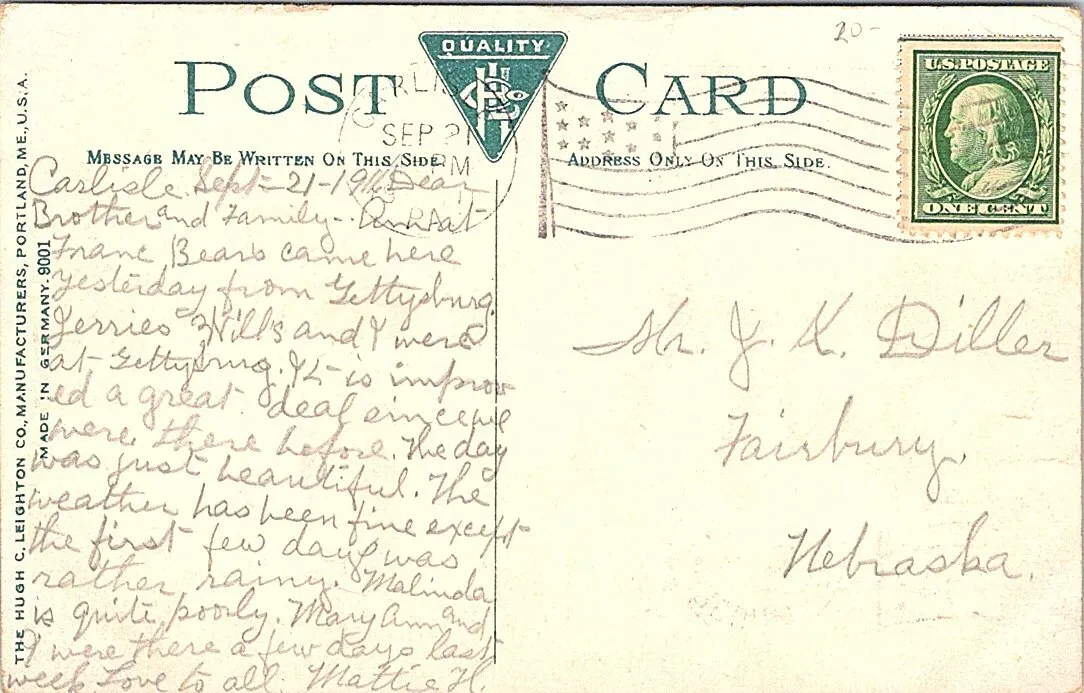 20-
QUALITY
POST CARD
U.S. POSTAGE
ONE CENT
SEP 21
PM
MESSAGE MAY BE WRITTEN ON THIS SIDE.
ADDRESS ONLY ON THIS SIDE.
THE HUGH C. LEIGHTON CO., MANUFACTURERS, PORTLAND, ME., U.S.A.
MADE IN GERMANY. 9001
Carlisle Sept-21-19 Dear
Brother and Family- at
Franc Bears came here
yesterday from Gettysburg.
Jerries Wills and I were
at Gettysburg. It is improv
ed a great deal since we
were there before. The day
was just beautiful. The
weather has been fine except
the first few days was
rather rainy. Malinda
is quite poorly. Mary Ann and
I were there a few days last
week. Love to all. Mattie H.
Mr. J. K. Diller
Fairbury,
Nebraska.